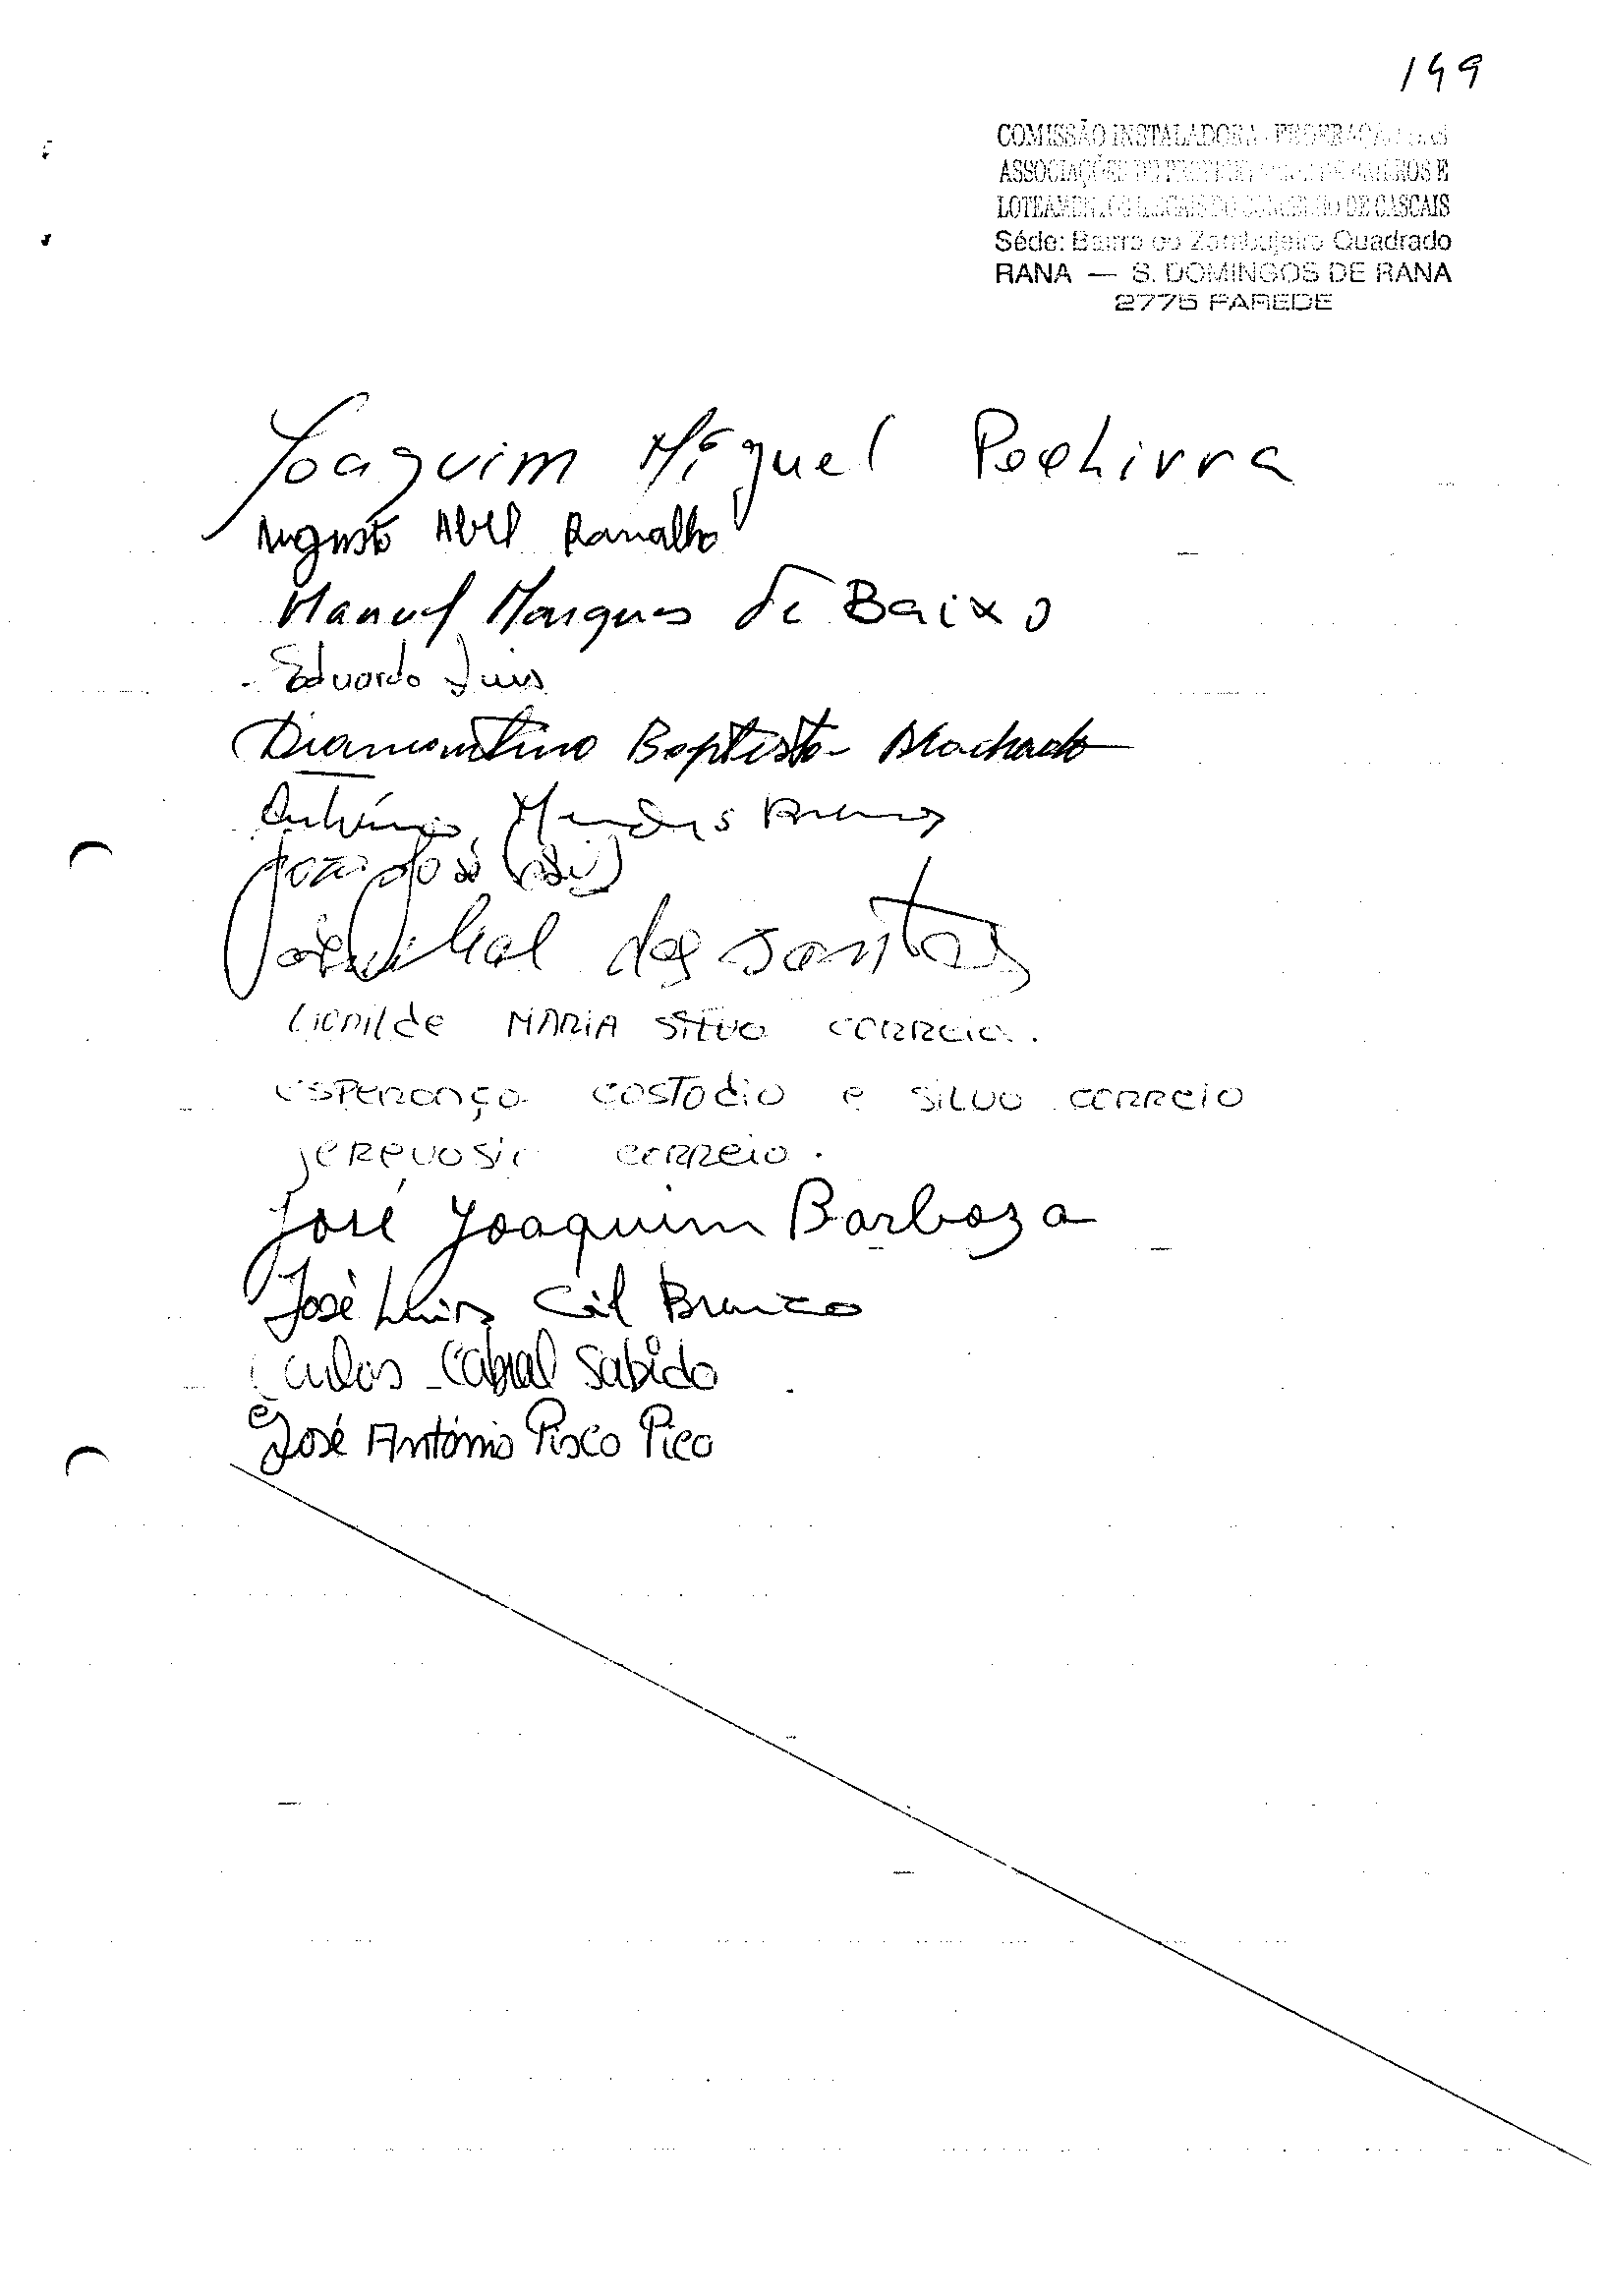 149
COMISSÃO INSTALADORA - FEDERAÇÃO DAS
ASSOCIAÇÕES DE PROPRIETÁRIOS DE BAIRROS E
LOTEAMENTOS ILEGAIS DO CONCELHO DE CASCAIS
Séde: Bairro do Zambujeiro Quadrado
RANA — S. DOMINGOS DE RANA
2775 PAREDE
Joaquim Miguel Pechirra
Augusto Abel Ramalho
Manuel Marques de Baixo
Eduardo Luis
Diamantino Baptista Machado
António Mendes
João José
José dos Santos
Lionilde MARIA Silva correia.
esperança custodio e silva correio
correio.
José Joaquim Barboza
José Luis Gil Branco
Carlos Cabral Sabido
José António Pisco Pico